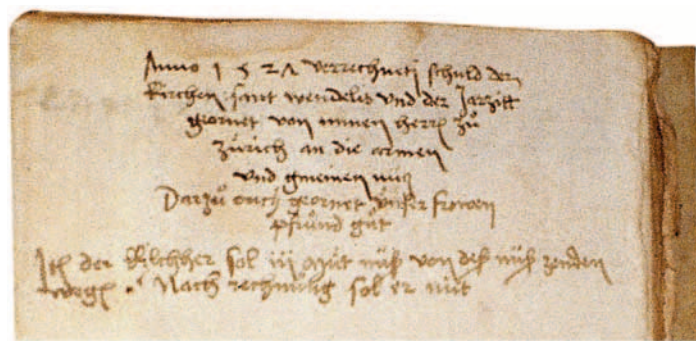 Anno 1527 verrechneti schuld der
kirchen sant wendelis und der Jarzitt
geornet von minen herrn zů
zürich an die armen
und gmeinen nutz
Darzů ouch geornet unser frowen
pfrůnd gůt
Itē der kilchher sol iii müt nuß von deß nuß zenden
wegē. Nach rechnung sol er nüt